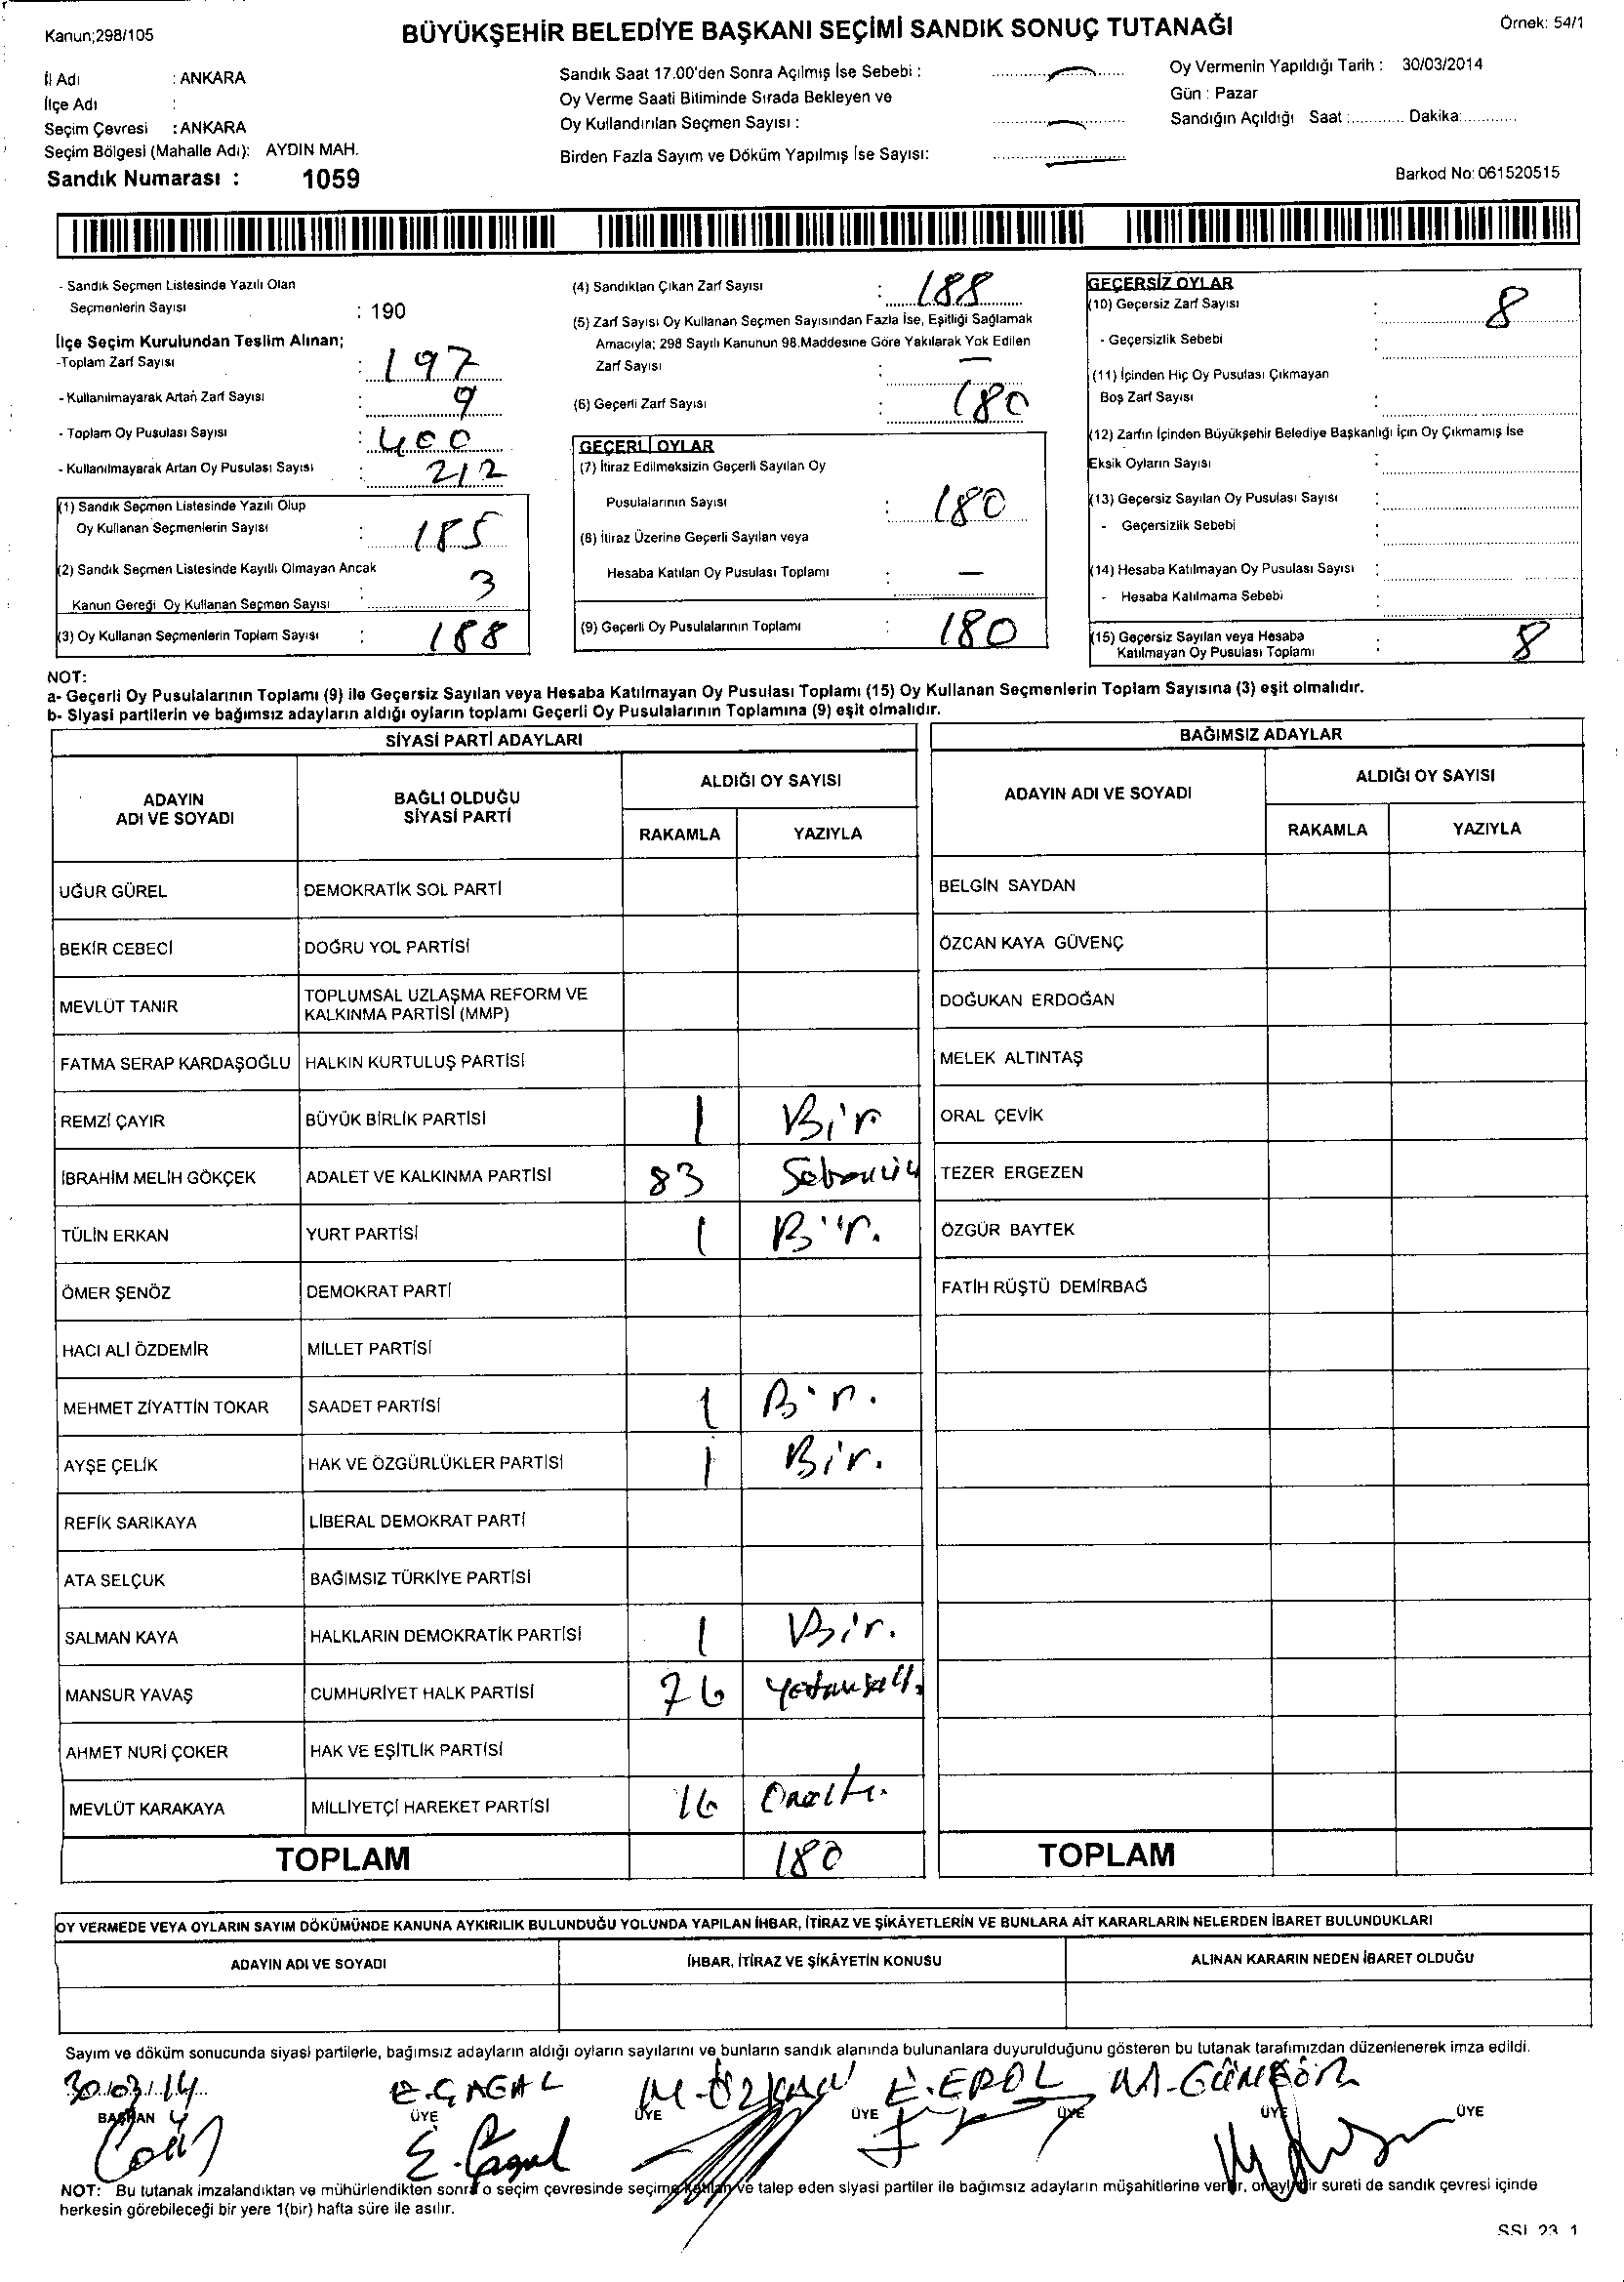 Kanun;298/105
BÜYÜKŞEHİR BELEDİYE BAŞKANI SEÇİMİ SANDIK SONUÇ TUTANAĞI
Örnek: 54/1
İl Adı : ANKARA
İlçe Adı :
Seçim Çevresi : ANKARA
Seçim Bölgesi (Mahalle Adı): AYDIN MAH.
Sandık Numarası : 1059
Sandık Saat 17.00'den Sonra Açılmış İse Sebebi :
Oy Verme Saati Bitiminde Sırada Bekleyen ve
Oy Kullandırılan Seçmen Sayısı :
Birden Fazla Sayım ve Döküm Yapılmış İse Sayısı:
Oy Vermenin Yapıldığı Tarih : 30/03/2014
Gün : Pazar
Sandığın Açıldığı Saat :............ Dakika:............
Barkod No: 061520515
- Sandık Seçmen Listesinde Yazılı Olan
Seçmenlerin Sayısı : 190
İlçe Seçim Kurulundan Teslim Alınan;
-Toplam Zarf Sayısı : 197
- Kullanılmayarak Artan Zarf Sayısı : 9
- Toplam Oy Pusulası Sayısı : 400
- Kullanılmayarak Artan Oy Pusulası Sayısı : 212
(1) Sandık Seçmen Listesinde Yazılı Olup
Oy Kullanan Seçmenlerin Sayısı : 185
(2) Sandık Seçmen Listesinde Kayıtlı Olmayan Ancak
Kanun Gereği Oy Kullanan Seçmen Sayısı : 3
(3) Oy Kullanan Seçmenlerin Toplam Sayısı : 188
(4) Sandıktan Çıkan Zarf Sayısı : 188
(5) Zarf Sayısı Oy Kullanan Seçmen Sayısından Fazla İse, Eşitliği Sağlamak
Amacıyla; 298 Sayılı Kanunun 98.Maddesine Göre Yakılarak Yok Edilen
Zarf Sayısı : —
(6) Geçerli Zarf Sayısı : 180
GEÇERLİ OYLAR
(7) İtiraz Edilmeksizin Geçerli Sayılan Oy
Pusulalarının Sayısı : 180
(8) İtiraz Üzerine Geçerli Sayılan veya
Hesaba Katılan Oy Pusulası Toplamı : —
(9) Geçerli Oy Pusulalarının Toplamı : 180
GEÇERSİZ OYLAR
(10) Geçersiz Zarf Sayısı : 8
- Geçersizlik Sebebi :
(11) İçinden Hiç Oy Pusulası Çıkmayan
Boş Zarf Sayısı :
(12) Zarfın İçinden Büyükşehir Belediye Başkanlığı İçin Oy Çıkmamış İse
Eksik Oyların Sayısı :
(13) Geçersiz Sayılan Oy Pusulası Sayısı :
- Geçersizlik Sebebi :
(14) Hesaba Katılmayan Oy Pusulası Sayısı :
- Hesaba Katılmama Sebebi :
(15) Geçersiz Sayılan veya Hesaba
Katılmayan Oy Pusulası Toplamı : 8
NOT:
a- Geçerli Oy Pusulalarının Toplamı (9) ile Geçersiz Sayılan veya Hesaba Katılmayan Oy Pusulası Toplamı (15) Oy Kullanan Seçmenlerin Toplam Sayısına (3) eşit olmalıdır.
b- Siyasi partilerin ve bağımsız adayların aldığı oyların toplamı Geçerli Oy Pusulalarının Toplamına (9) eşit olmalıdır.
SİYASİ PARTİ ADAYLARI
ADAYIN
ADI VE SOYADI
BAĞLI OLDUĞU
SİYASİ PARTİ
ALDIĞI OY SAYISI
RAKAMLA YAZIYLA
UĞUR GÜREL DEMOKRATİK SOL PARTİ
BEKİR CEBECİ DOĞRU YOL PARTİSİ
MEVLÜT TANIR TOPLUMSAL UZLAŞMA REFORM VE
KALKINMA PARTİSİ (MMP)
FATMA SERAP KARDAŞOĞLU HALKIN KURTULUŞ PARTİSİ
REMZİ ÇAYIR BÜYÜK BİRLİK PARTİSİ 1 Bir
İBRAHİM MELİH GÖKÇEK ADALET VE KALKINMA PARTİSİ 83
TÜLİN ERKAN YURT PARTİSİ 1 Bir.
ÖMER ŞENÖZ DEMOKRAT PARTİ
HACI ALİ ÖZDEMİR MİLLET PARTİSİ
MEHMET ZİYATTİN TOKAR SAADET PARTİSİ 1 Bir.
AYŞE ÇELİK HAK VE ÖZGÜRLÜKLER PARTİSİ 1 Bir.
REFİK SARIKAYA LİBERAL DEMOKRAT PARTİ
ATA SELÇUK BAĞIMSIZ TÜRKİYE PARTİSİ
SALMAN KAYA HALKLARIN DEMOKRATİK PARTİSİ 1 Bir.
MANSUR YAVAŞ CUMHURİYET HALK PARTİSİ 76
AHMET NURİ ÇOKER HAK VE EŞİTLİK PARTİSİ
MEVLÜT KARAKAYA MİLLİYETÇİ HAREKET PARTİSİ 16 Onaltı.
TOPLAM 180
BAĞIMSIZ ADAYLAR
ADAYIN ADI VE SOYADI
ALDIĞI OY SAYISI
RAKAMLA YAZIYLA
BELGİN SAYDAN
ÖZCAN KAYA GÜVENÇ
DOĞUKAN ERDOĞAN
MELEK ALTINTAŞ
ORAL ÇEVİK
TEZER ERGEZEN
ÖZGÜR BAYTEK
FATİH RÜŞTÜ DEMİRBAĞ
TOPLAM
OY VERMEDE VEYA OYLARIN SAYIM DÖKÜMÜNDE KANUNA AYKIRILIK BULUNDUĞU YOLUNDA YAPILAN İHBAR, İTİRAZ VE ŞİKÂYETLERİN VE BUNLARA AİT KARARLARIN NELERDEN İBARET BULUNDUKLARI
ADAYIN ADI VE SOYADI İHBAR, İTİRAZ VE ŞİKÂYETİN KONUSU ALINAN KARARIN NEDEN İBARET OLDUĞU
Sayım ve döküm sonucunda siyasi partilerle, bağımsız adayların aldığı oyların sayılarını ve bunların sandık alanında bulunanlara duyurulduğunu gösteren bu tutanak tarafımızdan düzenlenerek imza edildi.
30.03.14 E.ÇAĞAL M.ÖZKAN E.EROL M.GÜNGÖR
BAŞKAN ÜYE ÜYE ÜYE ÜYE ÜYE ÜYE
E.Çagal
NOT: Bu tutanak imzalandıktan ve mühürlendikten sonra o seçim çevresinde seçime katılan ve talep eden siyasi partiler ile bağımsız adayların müşahitlerine verilir, onaylı bir sureti de sandık çevresi içinde
herkesin görebileceği bir yere 1(bir) hafta süre ile asılır.